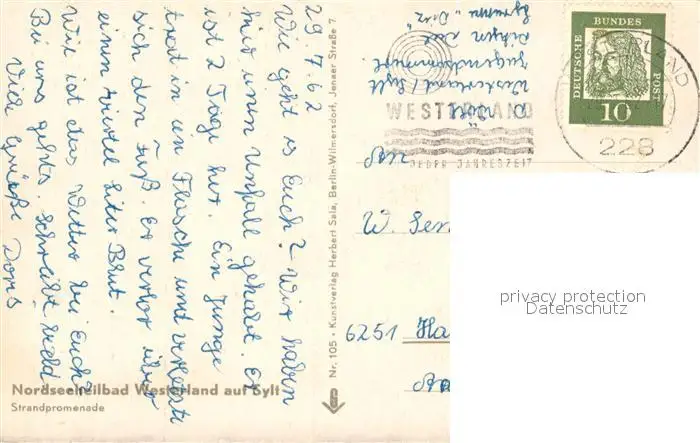 29.7.62
Wie geht es Euch? Wir haben
hier einen Unfall gehabt. Er
ist 2 Tage her. Ein Junge
trat in ein Flasche und verletzte
sich den Fuß. Er verlor über
einen viertel Liter Blut.
Wie ist das Wetter bei Euch?
Bei uns gehts. Schreibt bald
Viele Grüße Doris
Nordseeheilbad Westerland auf Sylt
Strandpromenade
Nr. 105 • Kunstverlag Herbert Sala, Berlin-Wilmersdorf, Jenaer Straße 7
Westerland / Sylt
WESTERLAND
JEDER JAHRESZEIT
DEUTSCHE BUNDES POST
10
228
W.
6251 Ha
privacy protection
Datenschutz